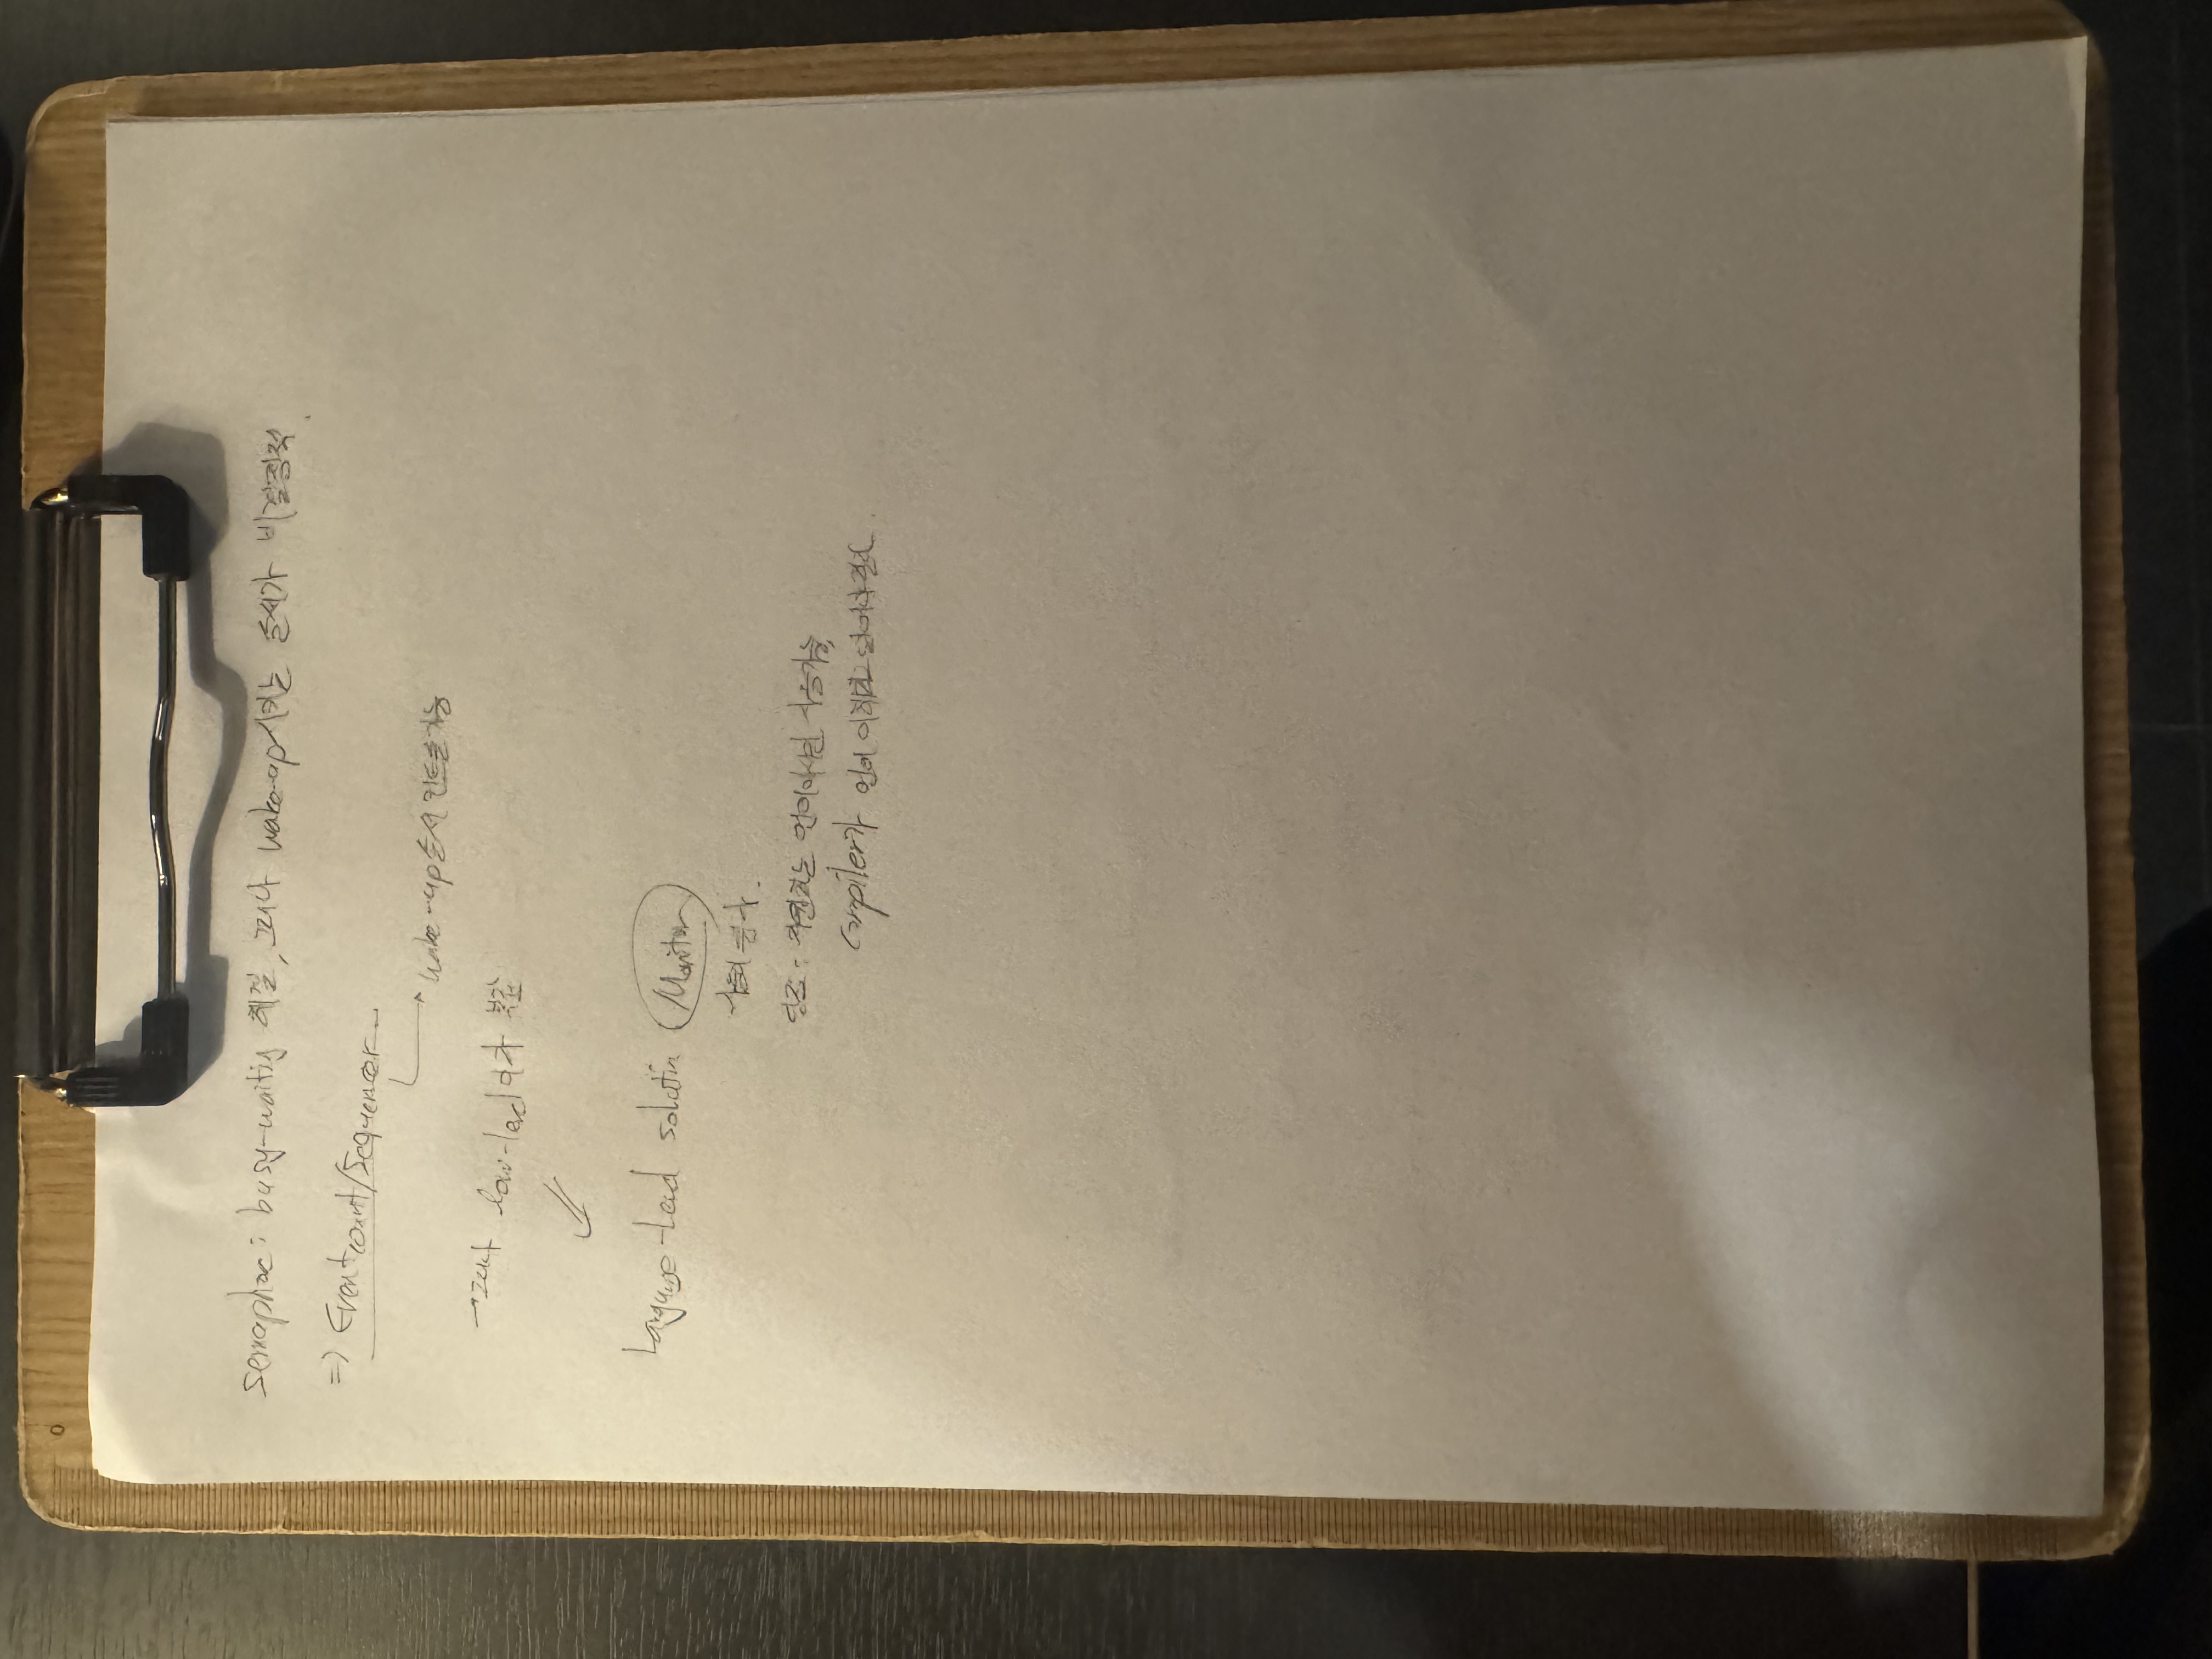 semaphore: busy-waiting 해결, 그러나 wake-up시키는 순서가 비결정적.
=> Eventcount/Sequencer
wake-up 순서 컨트롤 가능
→ 그러나 low-level이라 복잡
Language-Level solution Monitor
사용이 쉽다.
단점: 지원하는 언어에서만 사용가능,
compiler가 언어 이해하고 있어야